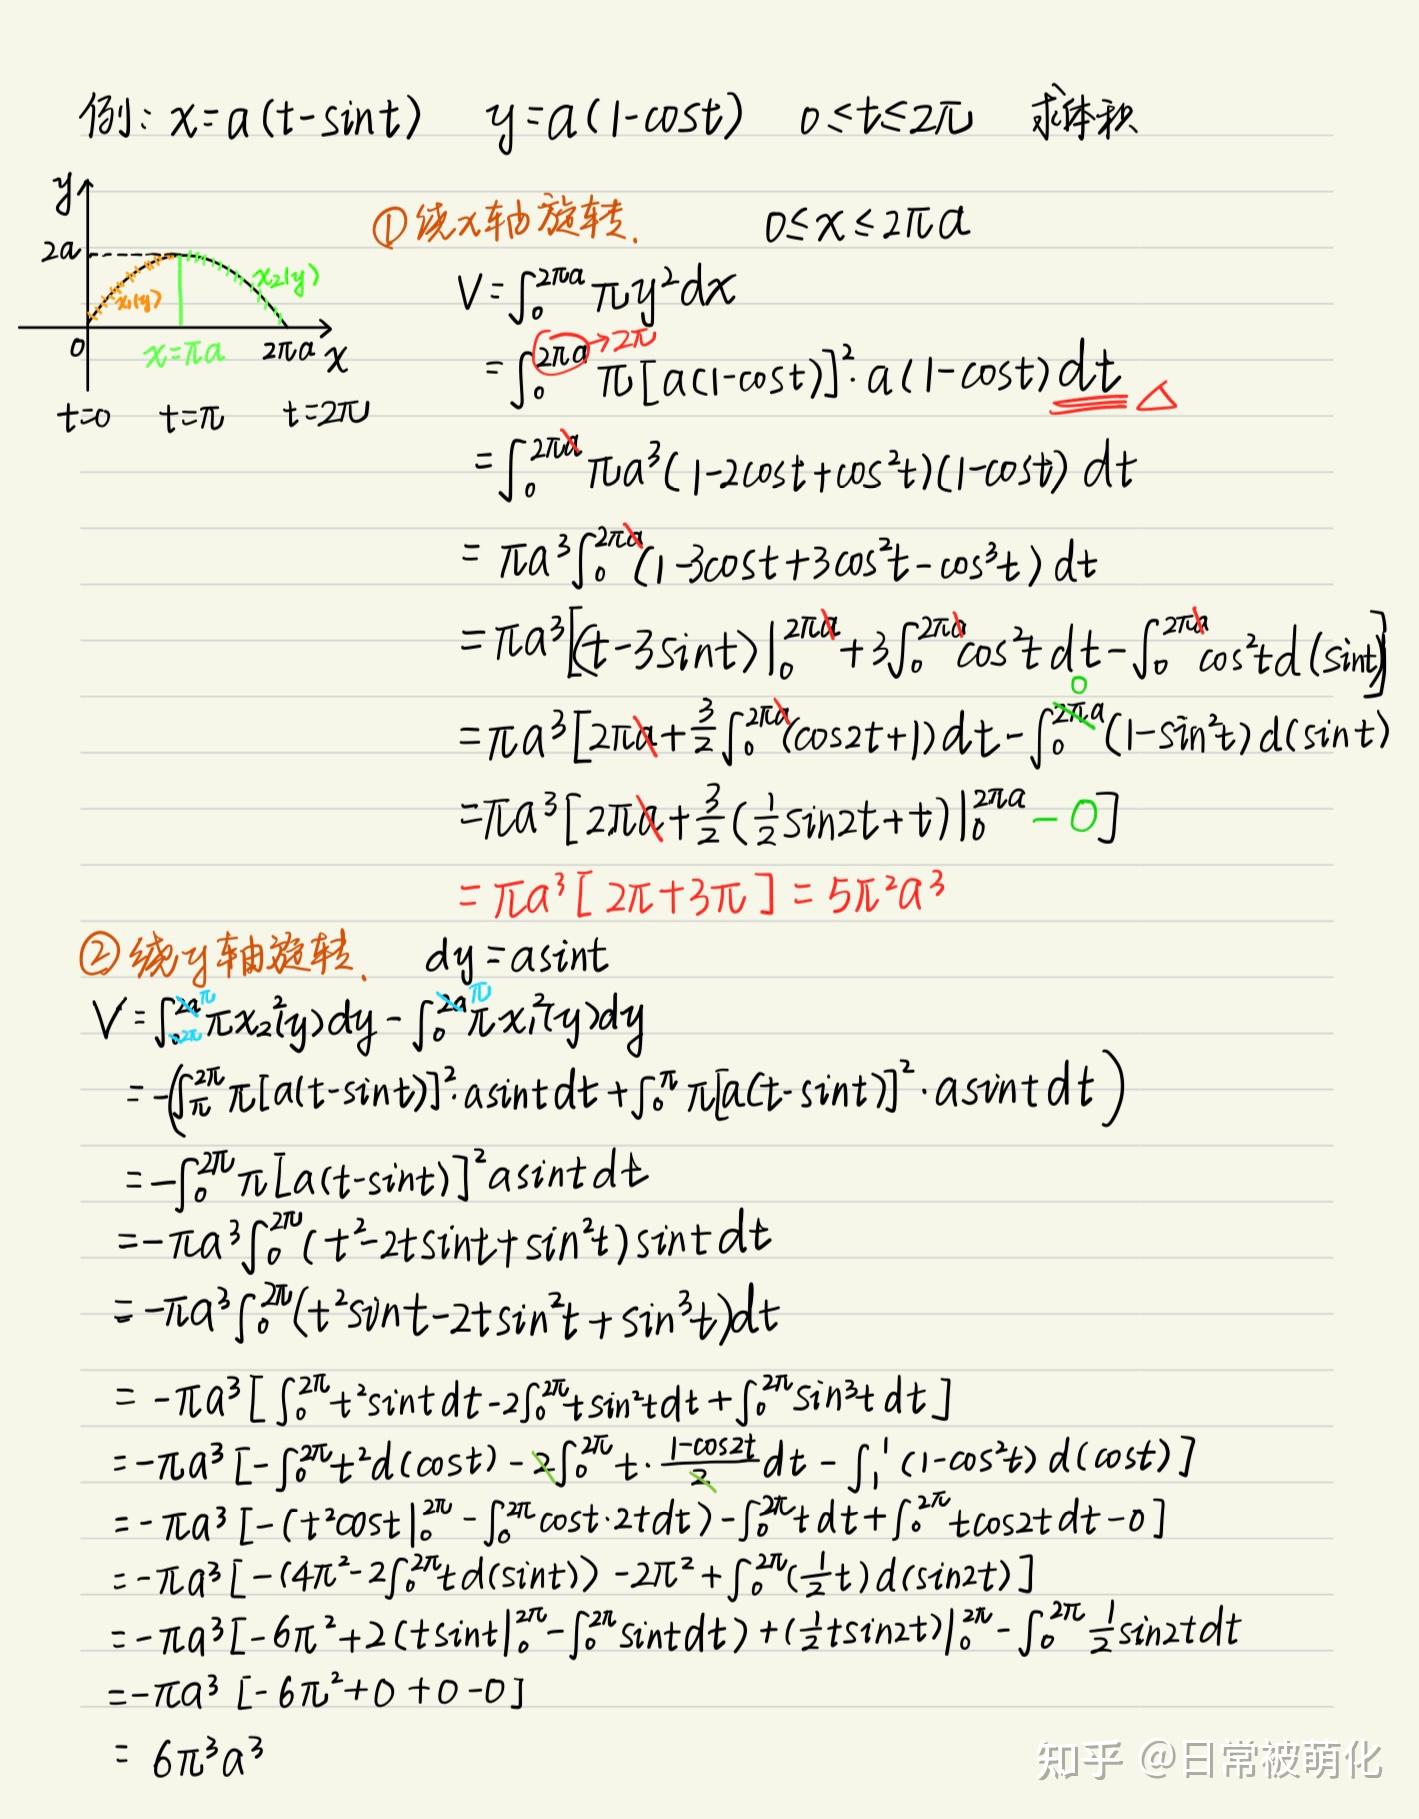 例: x=a(t-sint) y=a(1-cost) 0≤t≤2π 求体积
y
2a
x₁(y)
x₂(y)
0 x=πa 2πa x
t=0 t=π t=2π
①绕x轴旋转. 0≤x≤2πa
V=∫₀^{2πa} πy²dx
=∫₀^{2πa→2π} π[a(1-cost)]²·a(1-cost)dt △
=∫₀^{2πa} πa³(1-2cost+cos²t)(1-cost)dt
=πa³∫₀^{2πa}(1-3cost+3cos²t-cos³t)dt
=πa³[(t-3sint)|₀^{2πa}+3∫₀^{2πa}cos²tdt-∫₀^{2πa}cos²td(sint)]
=πa³[2πa+3/2∫₀^{2πa}(cos2t+1)dt-∫₀^{2πa 0}(1-sin²t)d(sint)
=πa³[2πa+3/2(1/2sin2t+t)|₀^{2πa}-0]
=πa³[2π+3π]=5π²a³
②绕y轴旋转. dy=asint
V=∫_{0 2π}^{2a π}πx₂²(y)dy-∫₀^{2a π}πx₁²(y)dy
=-(∫_π^{2π}π[a(t-sint)]²·asintdt+∫₀^ππ[a(t-sint)]²·asintdt)
=-∫₀^{2π}π[a(t-sint)]²asintdt
=-πa³∫₀^{2π}(t²-2tsint+sin²t)sintdt
=-πa³∫₀^{2π}(t²sint-2tsin²t+sin³t)dt
=-πa³[∫₀^{2π}t²sintdt-2∫₀^{2π}tsin²tdt+∫₀^{2π}sin³tdt]
=-πa³[-∫₀^{2π}t²d(cost)-2∫₀^{2π}t·(1-cos2t)/2dt-∫₁¹(1-cos²t)d(cost)]
=-πa³[-(t²cost|₀^{2π}-∫₀^{2π}cost·2tdt)-∫₀^{2π}tdt+∫₀^{2π}tcos2tdt-0]
=-πa³[-(4π²-2∫₀^{2π}td(sint))-2π²+∫₀^{2π}(1/2t)d(sin2t)]
=-πa³[-6π²+2(tsint|₀^{2π}-∫₀^{2π}sintdt)+(1/2tsin2t)|₀^{2π}-∫₀^{2π}1/2sin2tdt
=-πa³[-6π²+0+0-0]
=6π³a³
知乎 @日常被萌化